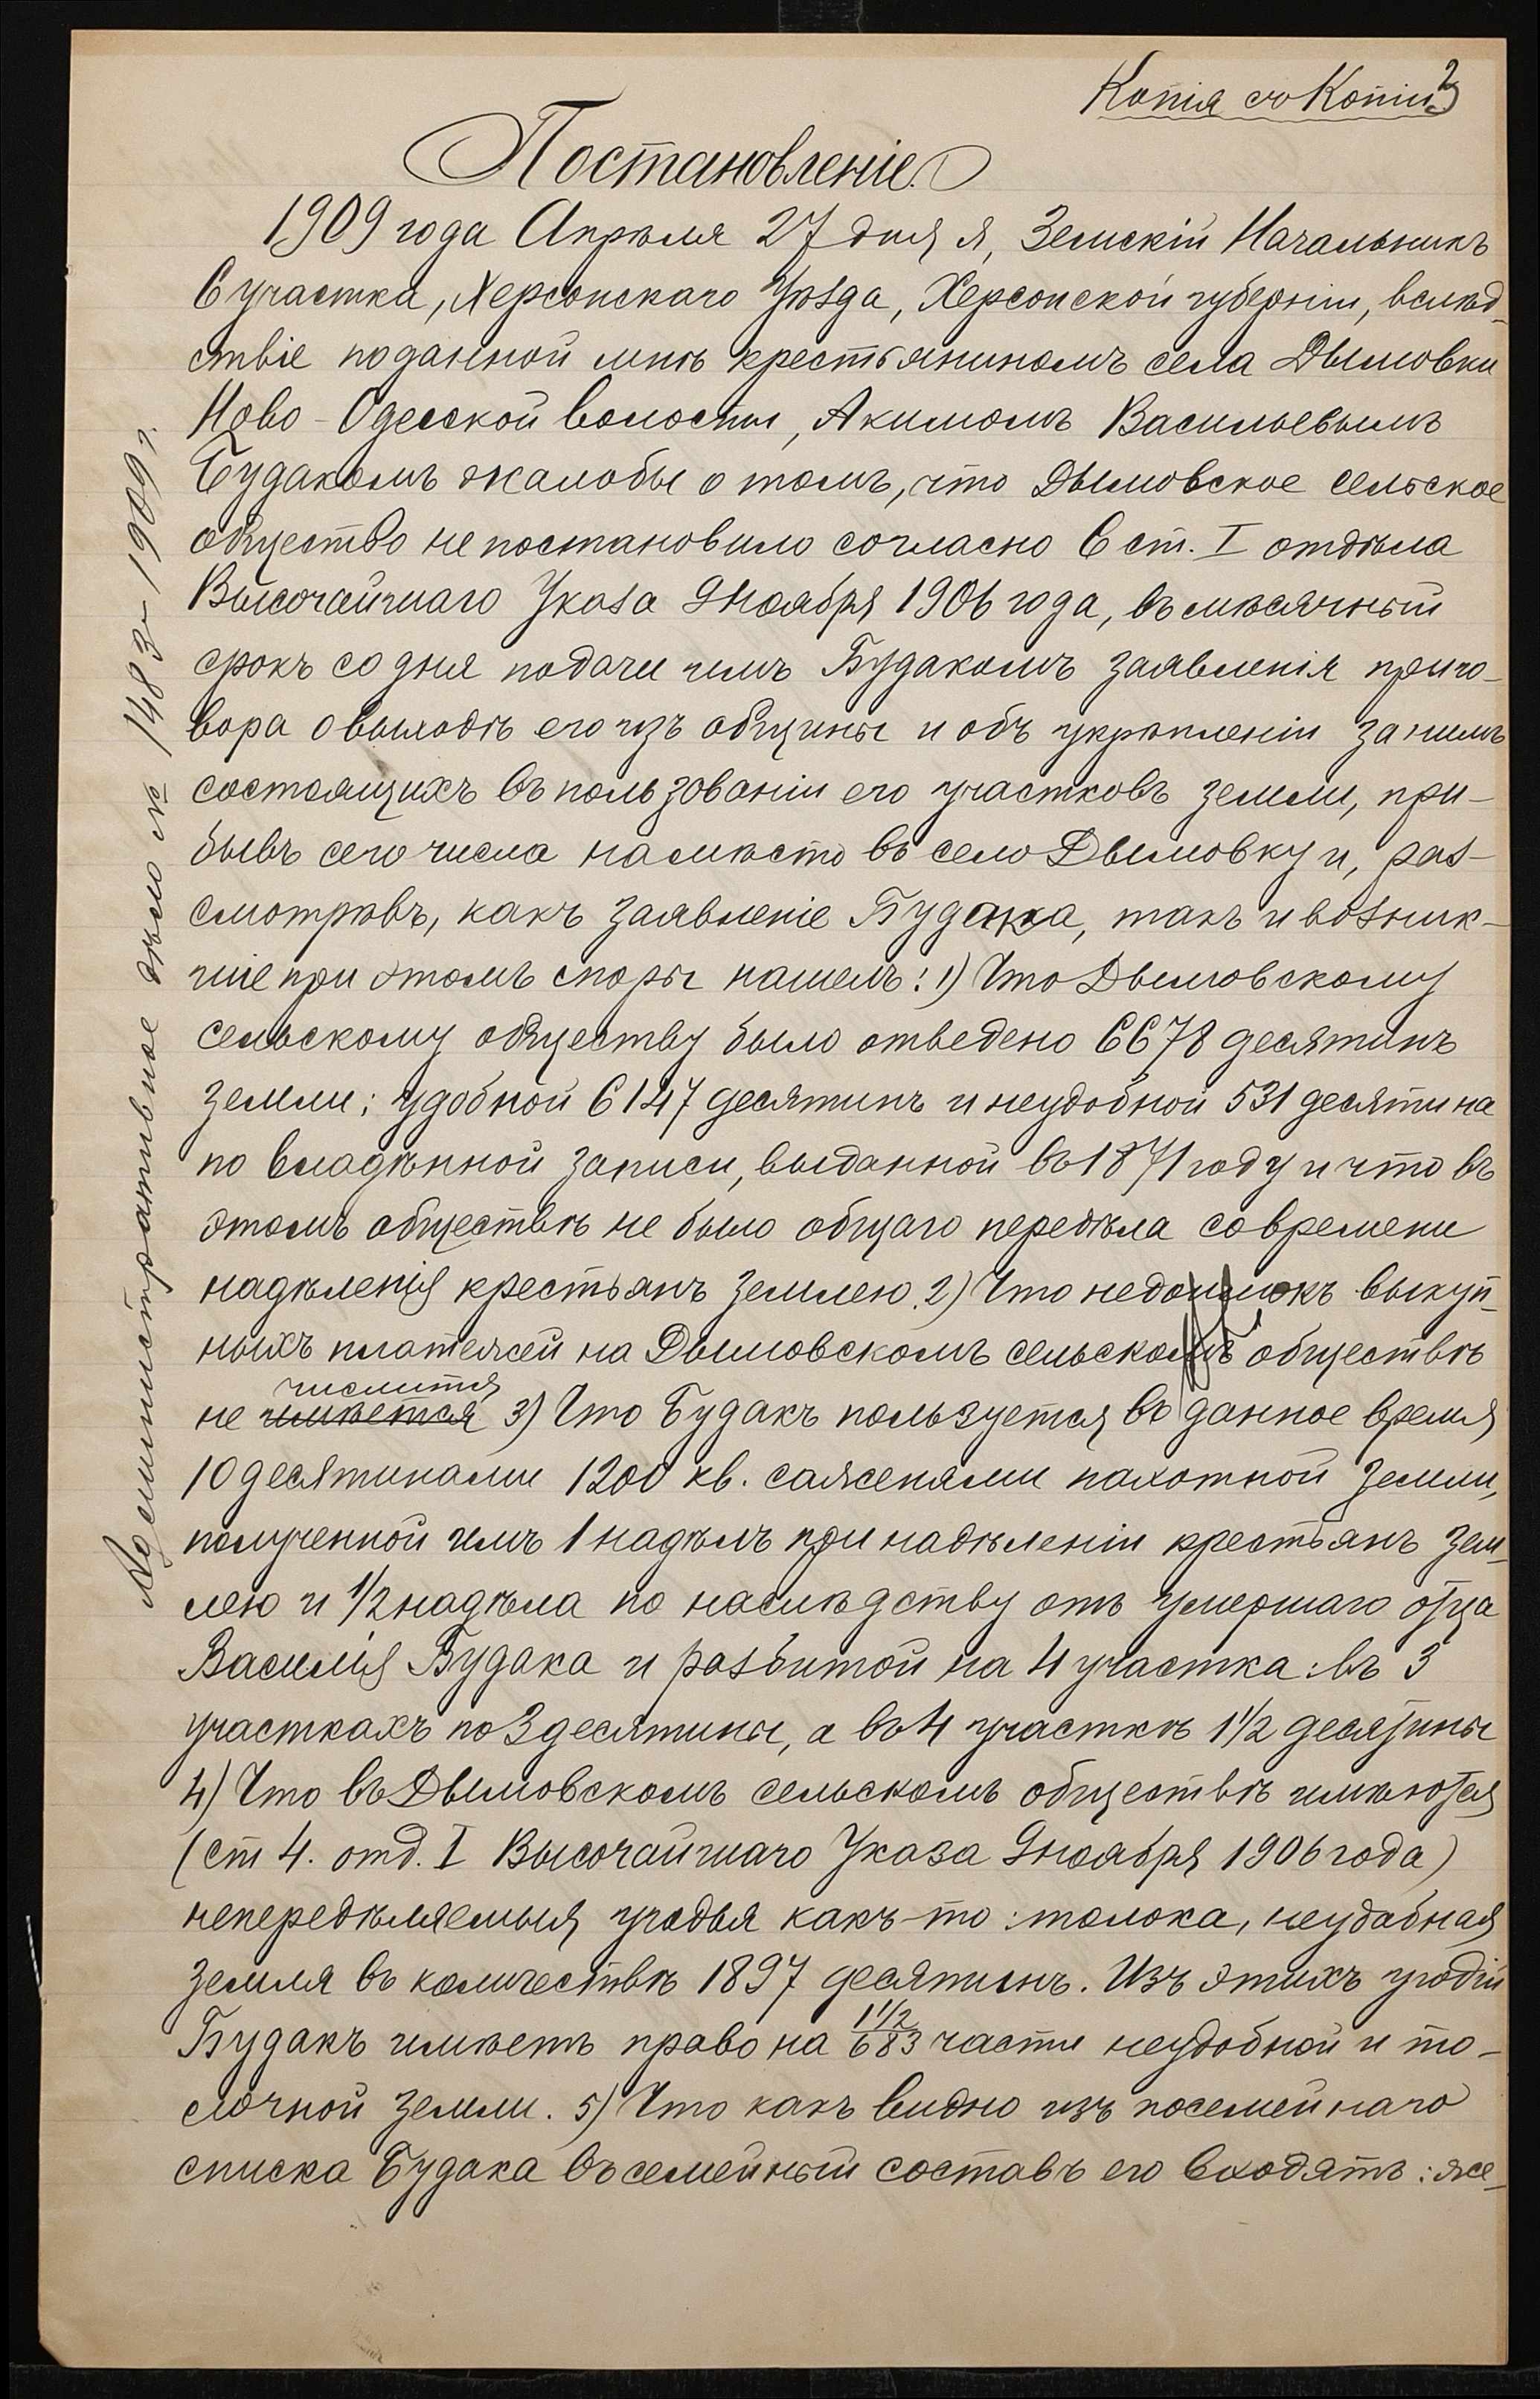 Копія съ Копіи
2
3
Постановленіе.
1909 года Апрѣля 27 дня я, Земскій Начальникъ
6 участка, Херсонскаго Уѣзда, Херсонской губерніи, вслѣд-
ствіе поданной мнѣ крестьяниномъ села Дымовки
Ново-Одесской волости, Акимомъ Васильевымъ
Будакомъ жалобы о томъ, что Дымовское сельское
общество не постановило согласно 6 ст. I отдѣла
Высочайшаго Указа 9 Ноября 1906 года, въ мѣсячный
срокъ со дня подачи имъ Будакомъ заявленія приго-
вора о выходѣ его изъ общины и объ укрѣпленіи за нимъ
состоящихъ въ пользованіи его участковъ земли, при-
бывъ сего числа на мѣсто въ село Дымовку и, раз-
смотрѣвъ, какъ заявленіе Будака, такъ и возник-
шіе при этомъ споры нашелъ: 1) Что Дымовскому
сельскому обществу было отведено 6678 десятинъ
земли; удобной 6147 десятинъ и неудобной 531 десятина
по владѣнной записи, выданной въ 1871 году и что въ
этомъ обществѣ не было общаго передѣла со времени
надѣленія крестьянъ землею. 2) Что недоимокъ выкуп-
ныхъ платежей на Дымовскомъ сельскомъ обществѣ
числится
не имѣется 3) Что Будакъ пользуется въ данное время
10 десятинами 1200 кв. саженями пахотной земли,
полученной имъ 1 надѣлъ при надѣленіи крестьянъ зем-
лею и 1/2 надѣла по наслѣдству отъ умершаго отца
Василія Будака и разбитой на 4 участка: въ 3
участкахъ по 3 десятины, а въ 4 участкѣ 1 1/2 десятины
4) Что въ Дымовскомъ сельскомъ обществѣ имѣются
(ст 4. отд. I Высочайшаго Указа 9 ноября 1906 года)
непередѣляемыя угодья какъ-то: толока, неудобная
земля въ количествѣ 1897 десятинъ. Изъ этихъ угодій
Будакъ имѣетъ право на 1 1/2/683 части неудобной и то-
лочной земли. 5) Что какъ видно изъ посемейнаго
списка Будака въ семейный составъ его входятъ: же-
Административное дѣло № 1483-1909 г.